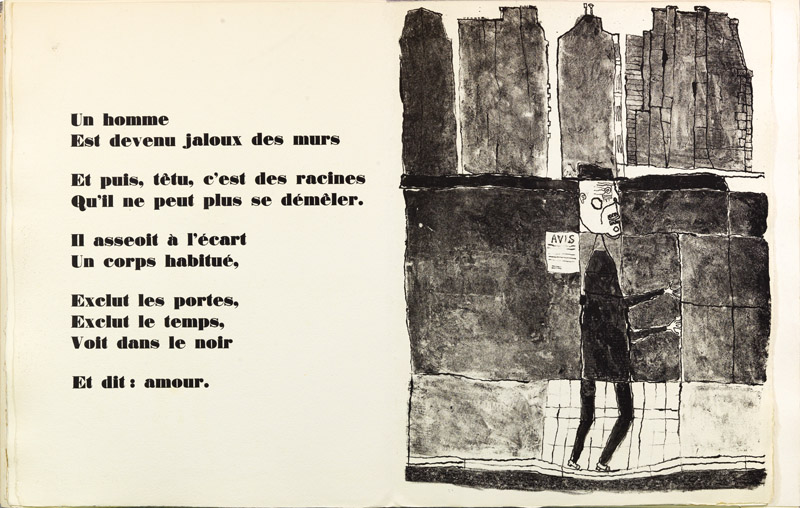 Un homme
Est devenu jaloux des murs
Et puis, têtu, c'est des racines
Qu'il ne peut plus se démêler.
Il asseoit à l'écart
Un corps habitué,
Exclut les portes,
Exclut le temps,
Voit dans le noir
Et dit : amour.
AVIS